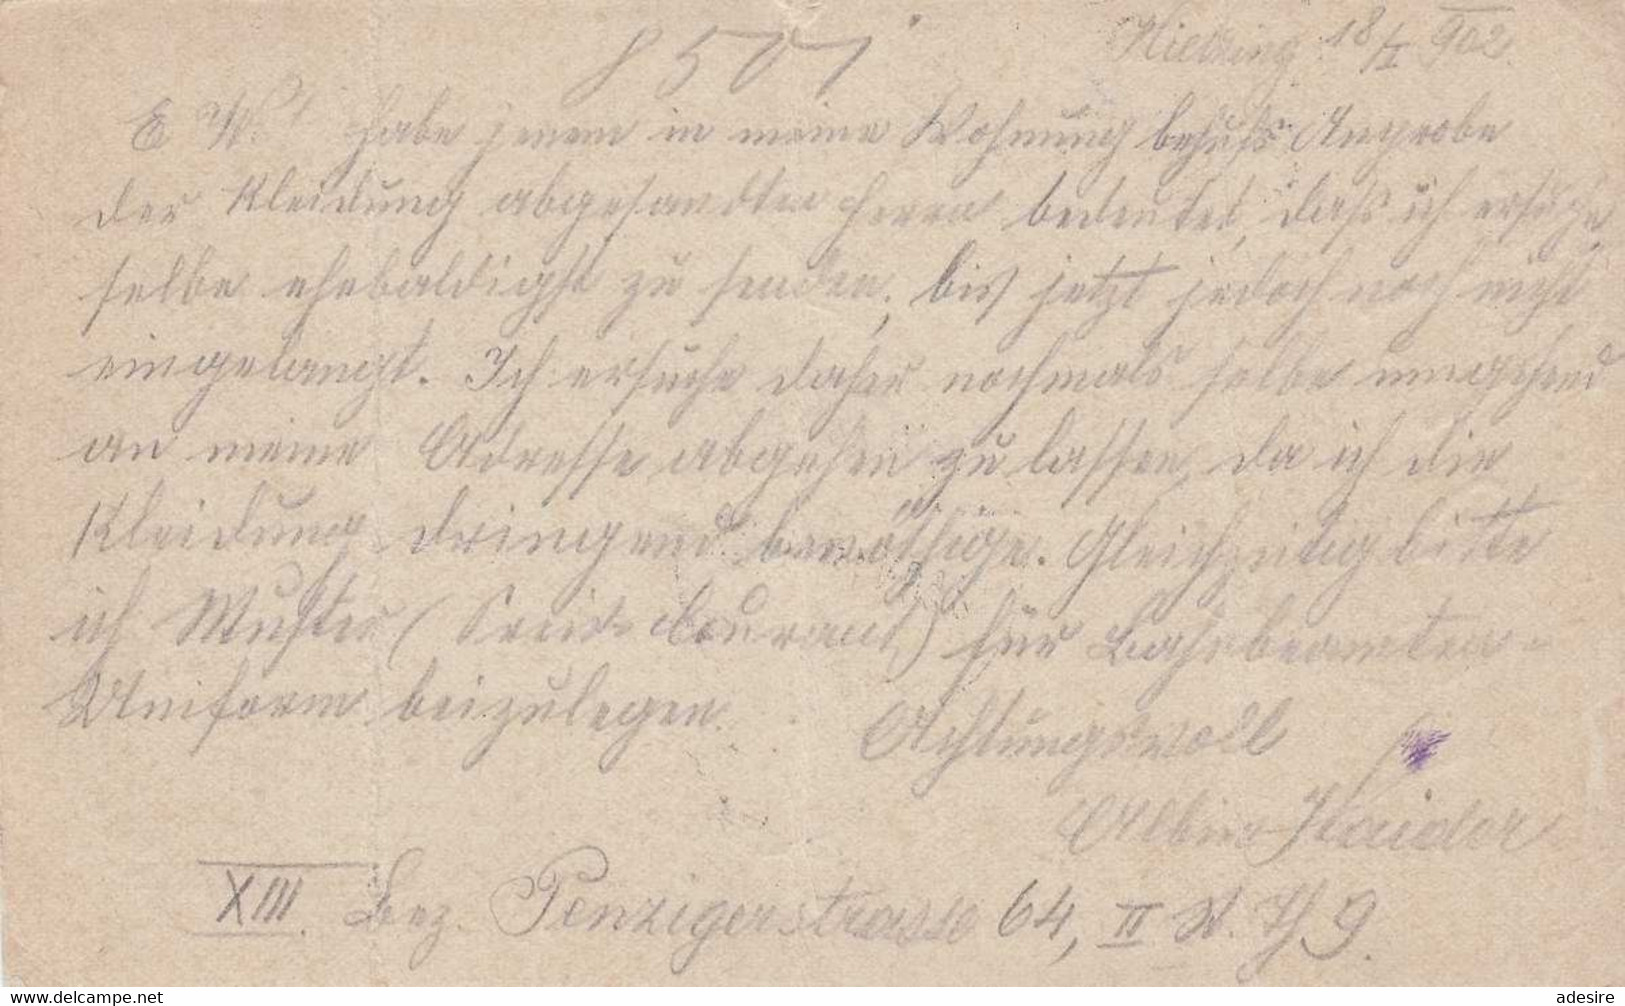 8501
Hietzing 18/I 902.
E W.! habe jenem in meine Wohnung behufs Anprobe
der Kleidung abgesandten Herrn bedeutet, daß ich ersuche,
selbe ehebaldigst zu senden, bis jetzt jedoch noch nicht
eingelangt. Ich ersuche daher nochmals selbe umgehend
an meine Adresse abgehen zu lassen, da ich die
Kleidung dringend benöthige. Gleichzeitig bitte
ich Muster (Preis-Courant) für Bahnbeamten-
Uniform beizulegen.
Achtungsvoll
Albin Haider
XIII. Bez. Penzigerstrasse 64, II St. Th 9.
www.delcampe.net
adesire